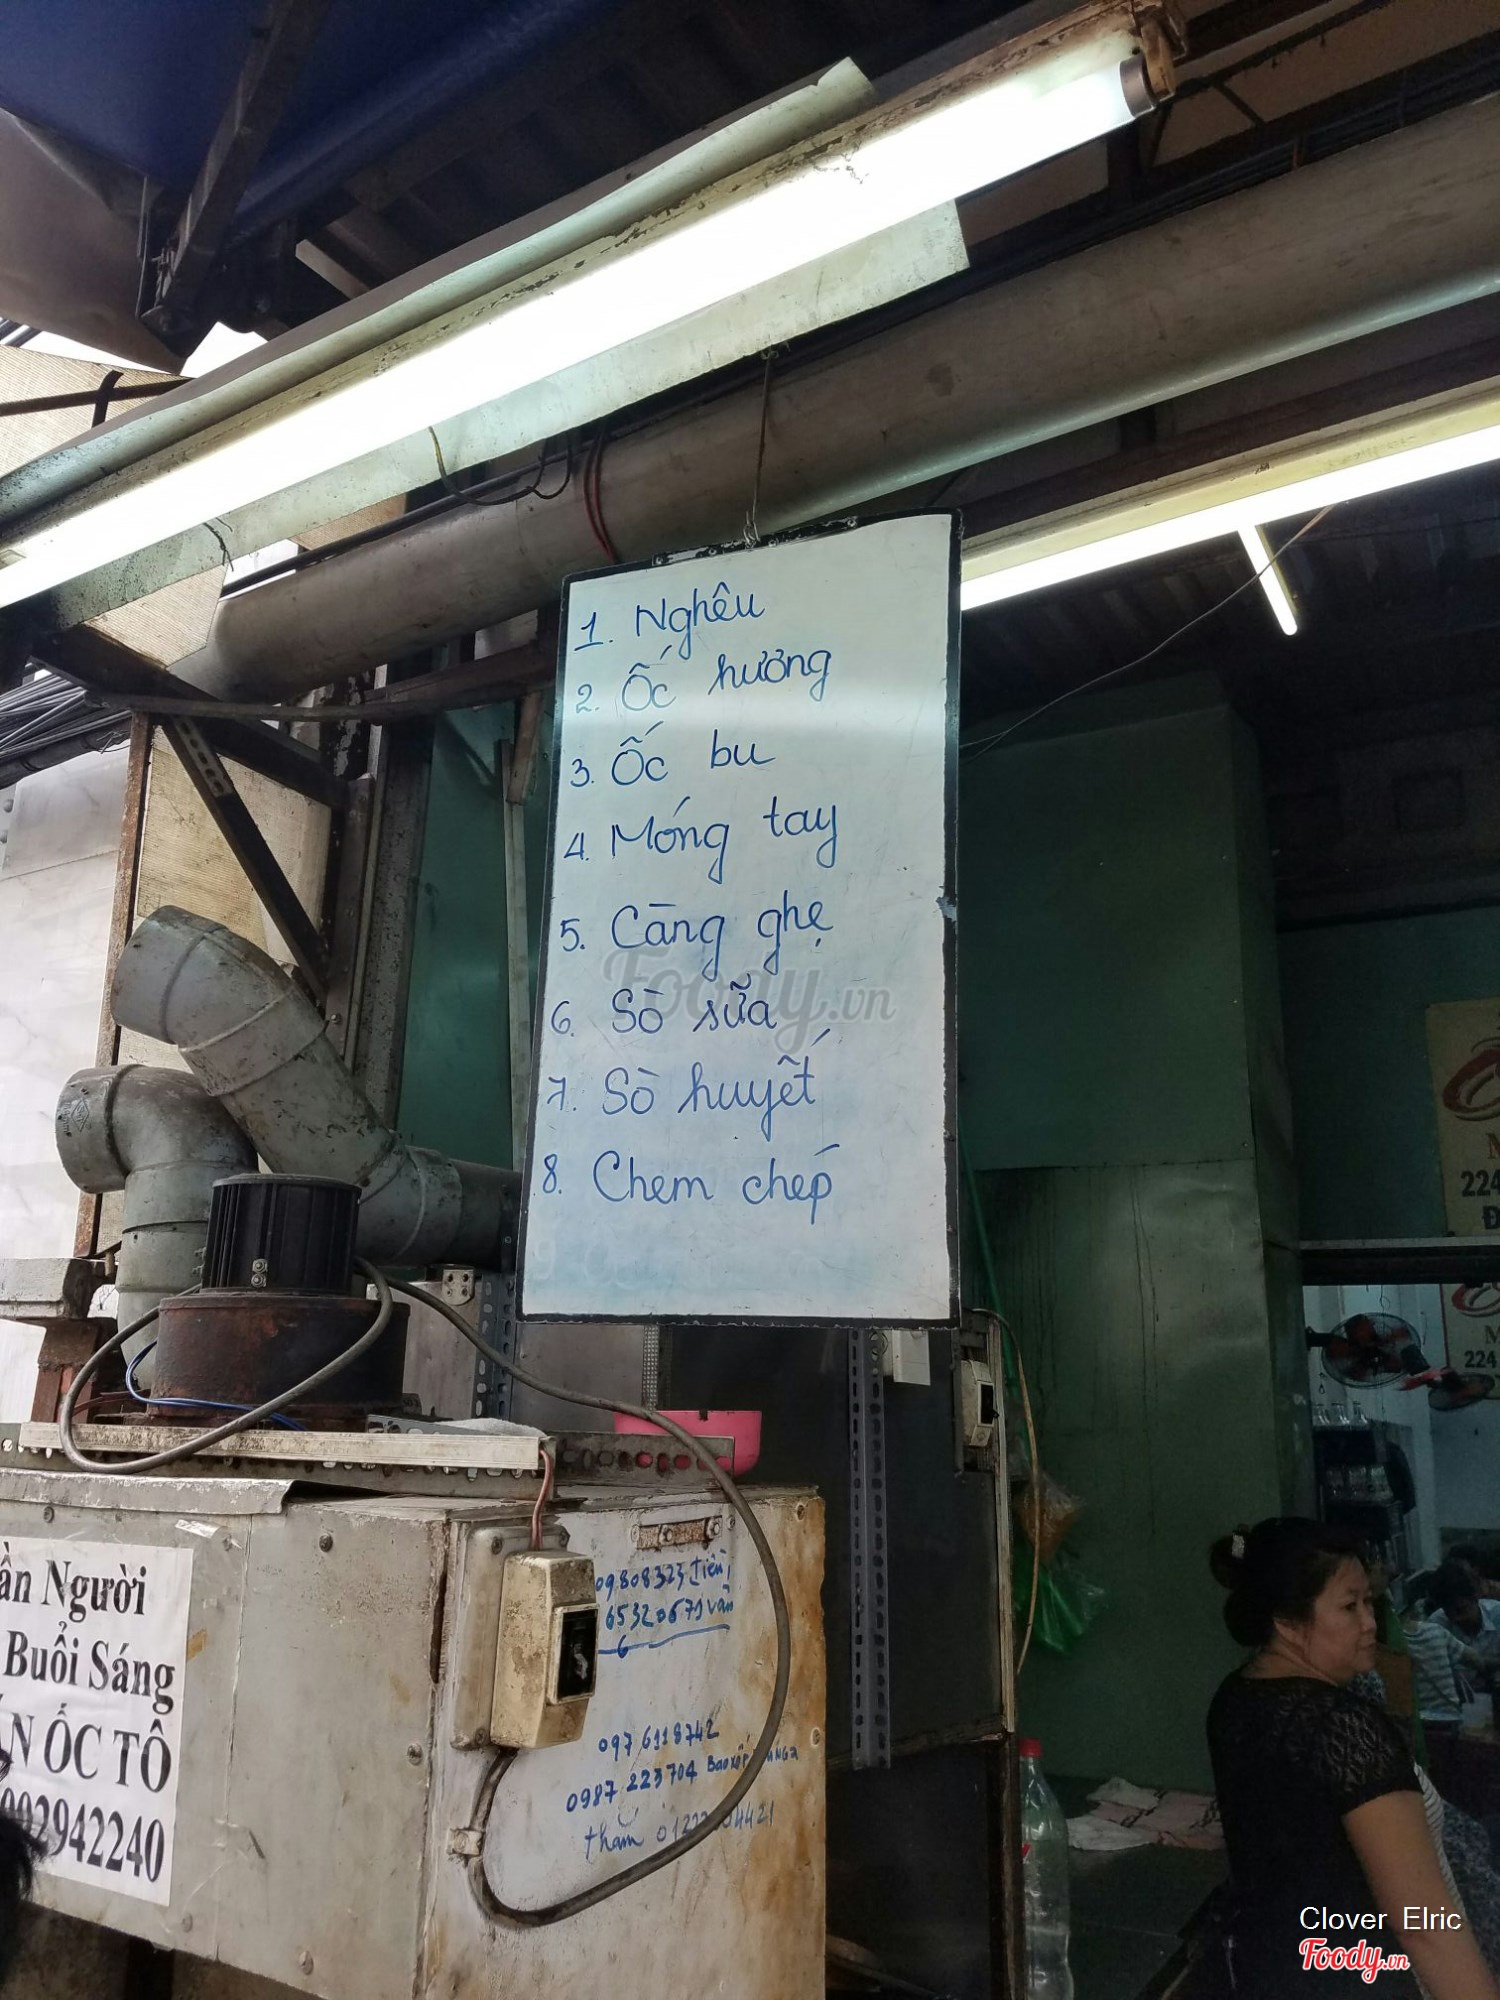 1. Nghêu
2. Ốc hương
3. Ốc bu
4. Móng tay
5. Càng ghẹ
6. Sò sữa
7. Sò huyết
8. Chem chép
Foody.vn
ần Người
Buổi Sáng
ÁN ỐC TÔ
002942240
09808323 tiên
6532067 vân
6
0976118742
0987 223704
thắm
M
224
Đ
M
224
Clover Elric
Foody.vn